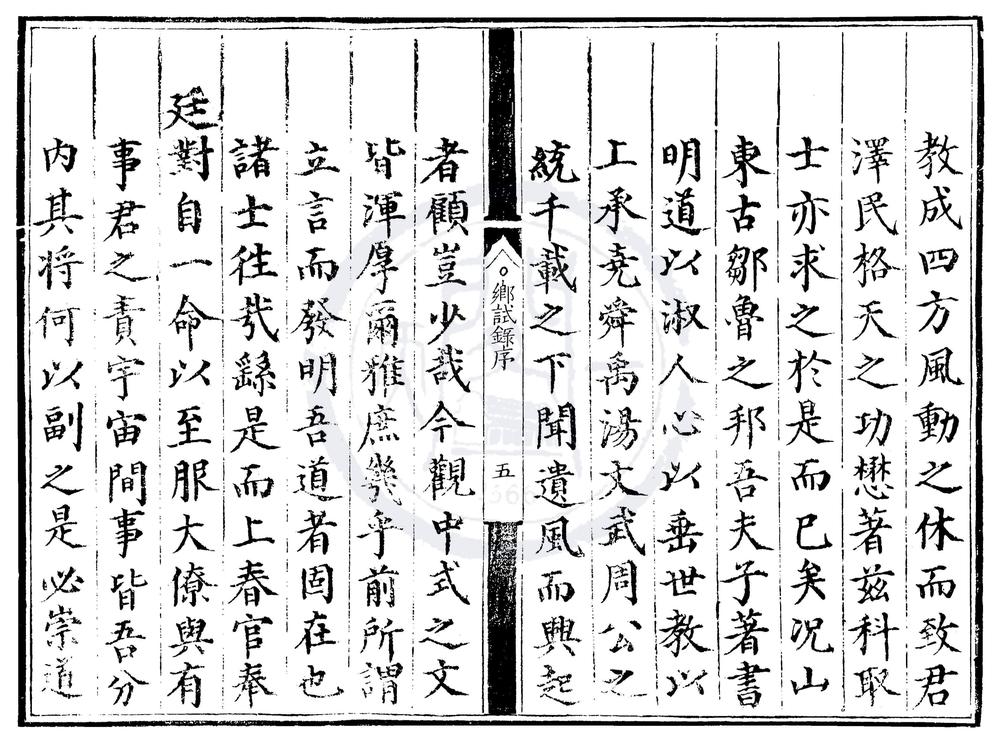 教成四方風動之休而致君
澤民格天之功懋著兹科取
士亦求之於是而已矣况山
東古鄒魯之邦吾夫子著書
明道以淑人心以垂世教以
上承堯舜禹湯文武周公之
統千載之下聞遺風而興起
鄉試錄序
五
者顧豈少哉今觀中式之文
皆渾厚爾雅庶幾乎前所謂
立言而發明吾道者固在也
諸士徃哉繇是而上春官奉
廷對自一命以至服大僚與有
事君之責宇宙間事皆吾分
内其将何以副之是必崇道